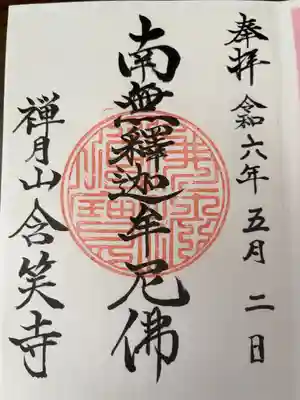 奉拝 令和六年五月二日
南無釋迦牟尼佛
禅月山含笑寺